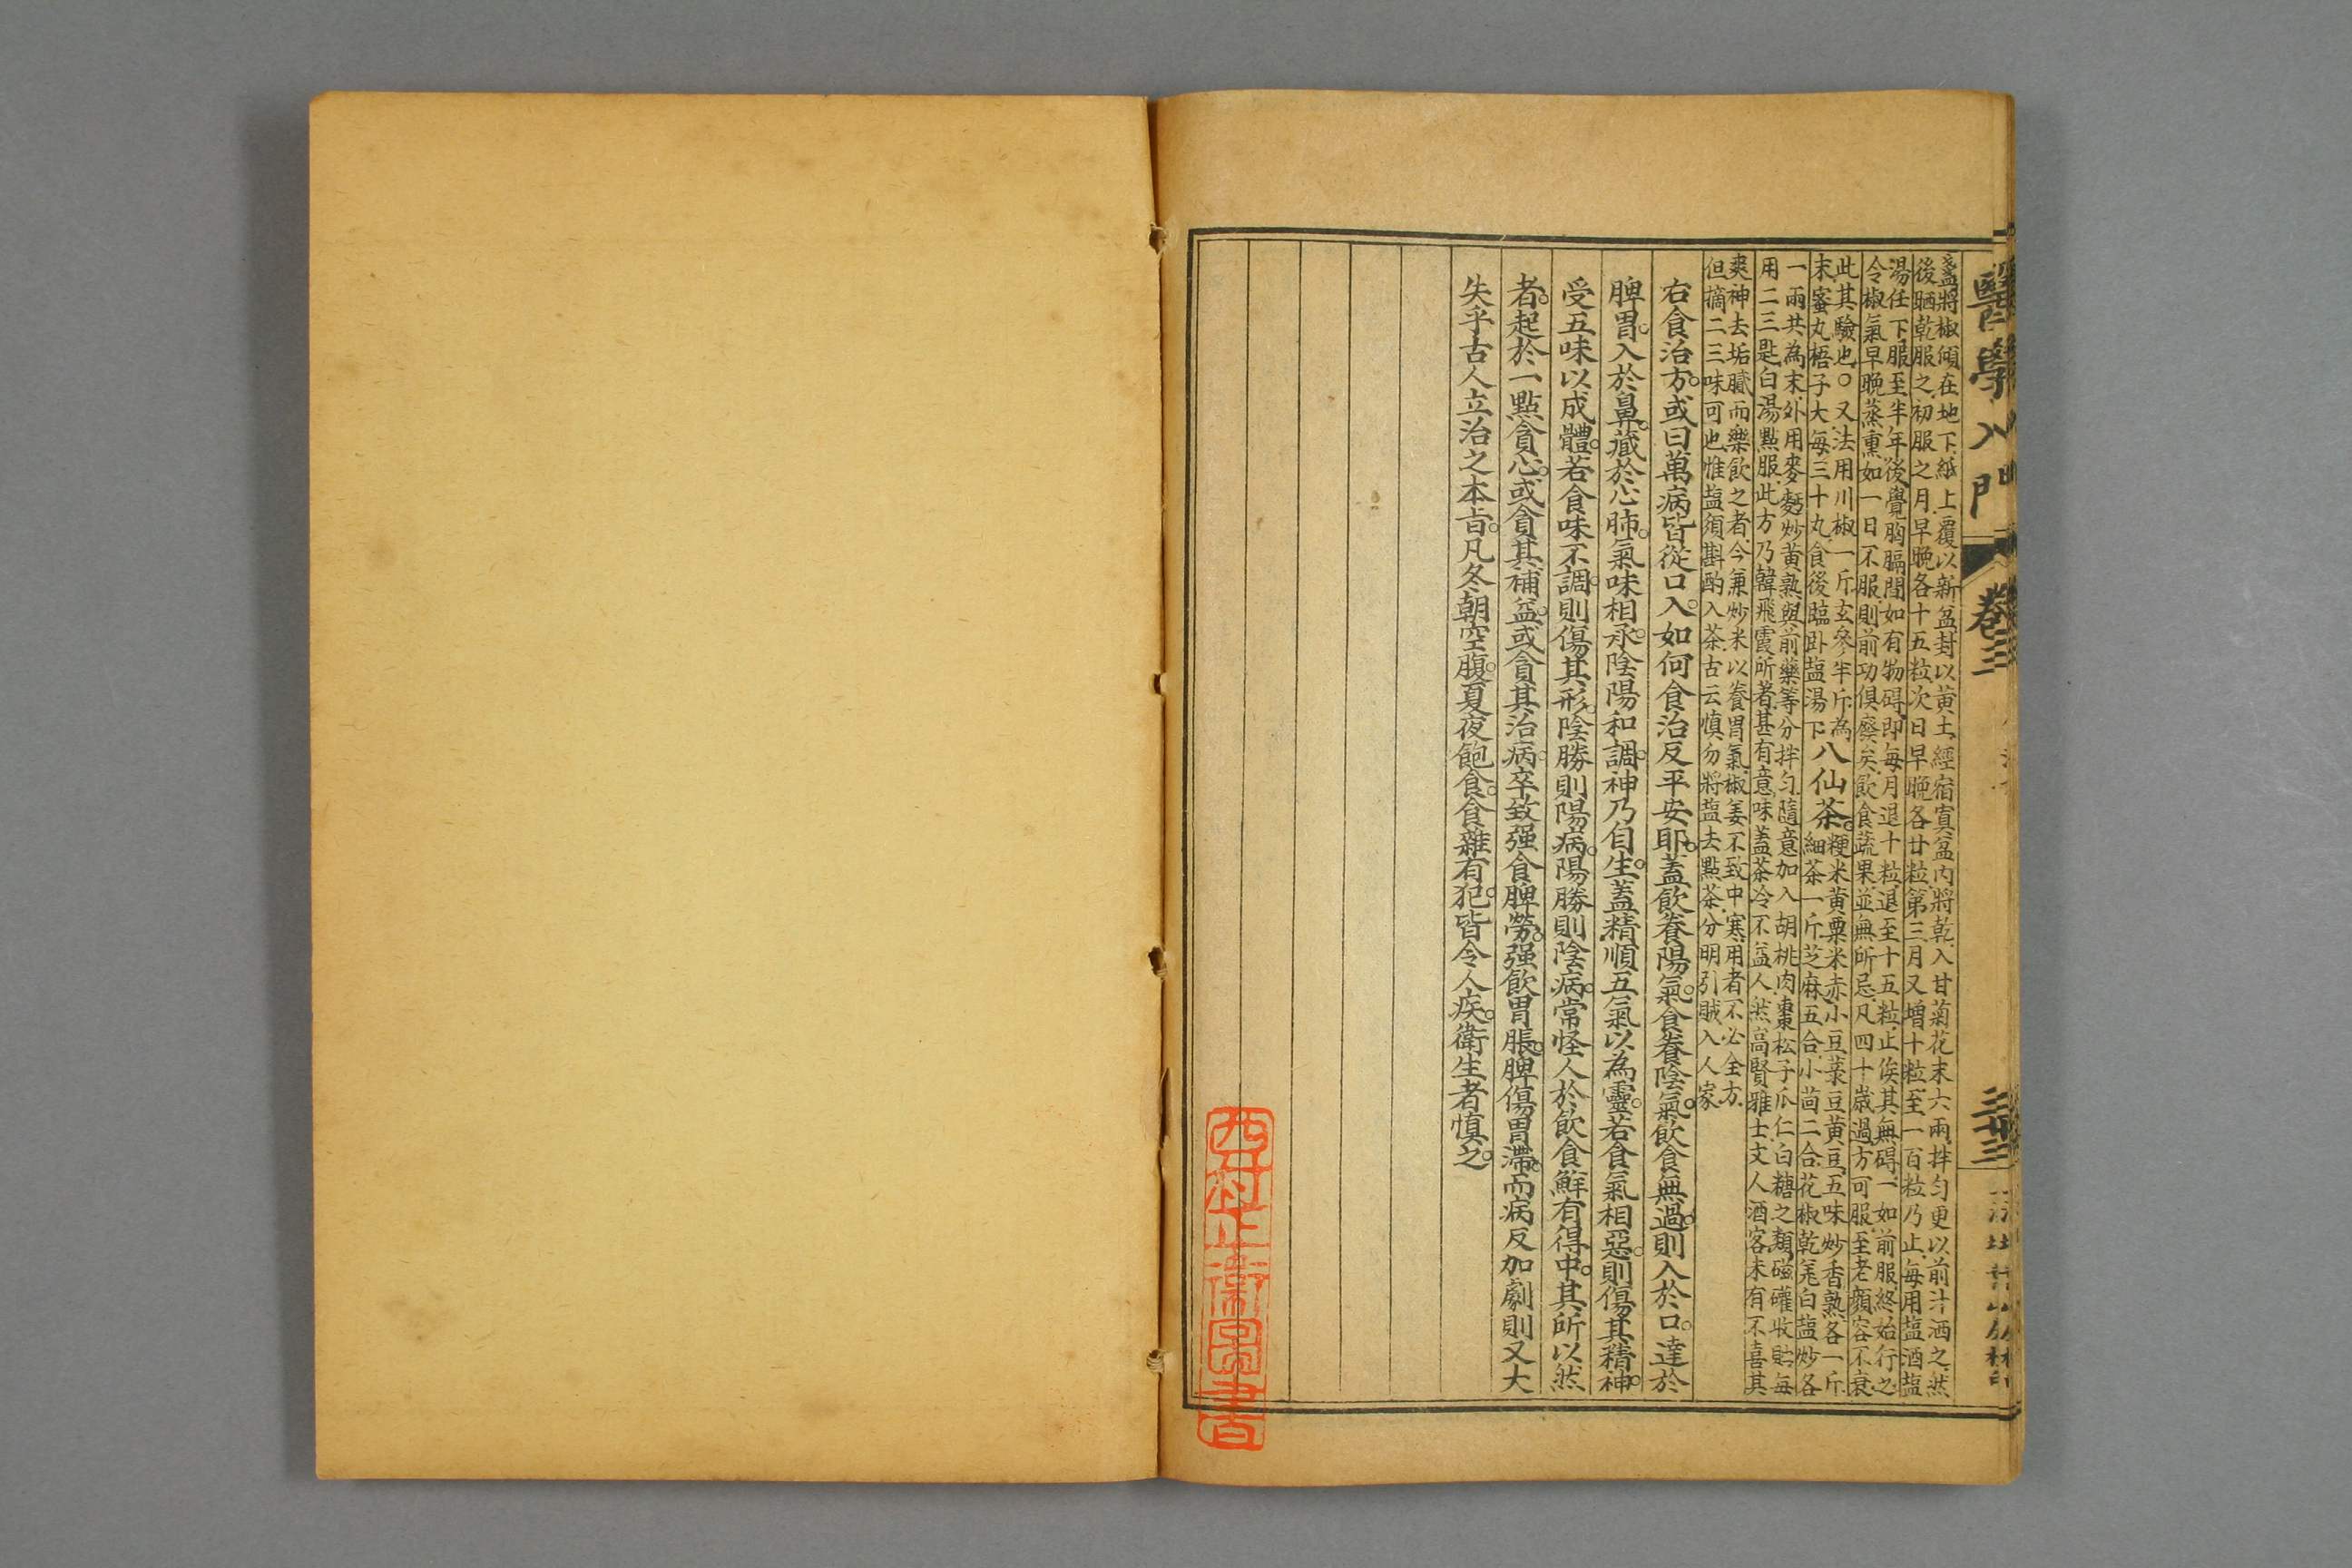 醫學入門
卷三
盞將椒傾在地下紙上覆以新盆封以黃土經宿寘盆內將乾入甘菊花末六兩拌勻更以前汁洒之然
後晒乾服之初服之月早晚各十五粒次日早晚各廿粒第三月又增十粒至一百粒乃止每用塩酒塩
湯任下服至半年後覺胸膈間如有物碍即每月退十粒退至十五粒止俟其無碍一如前服終始行之
令椒氣早晚蒸熏如一日不服則前功俱廢矣飲食蔬果並無所忌凡四十歲過方可服至老顏容不衰
此其驗也○又法用川椒一斤玄參半斤為
末蜜丸梧子大每三十丸食後臨卧塩湯下
八仙茶
粳米黃粟米赤小豆菉豆黃豆五味炒香熟各一斤
細茶一斤芝麻五合小茴二合花椒乾羌白塩炒各
一兩共為末外用麥麪炒黃熟與前藥等分拌勻隨意加入胡桃肉棗松子瓜仁白糖之類磁礶收貯每
用二三匙白湯點服此方乃韓飛霞所著甚有意味蓋茶冷不益人然高賢雅士文人酒客未有不喜其
爽神去垢膩而樂飲之者今兼炒米以養胃氣椒姜不致中寒用者不必全方
但摘二三味可也惟塩須斟酌入茶古云慎勿將塩去點茶分明引賊入人家
右食治方。或曰萬病皆從口入。如何食治反平安耶。蓋飲養陽氣。食養陰氣。飲食無過。則入於口。達於
脾胃。入於鼻。藏於心肺。氣味相承。陰陽和調。神乃自生。蓋精順五氣以為靈。若食氣相惡。則傷其精神。
受五味以成體。若食味不調。則傷其形。陰勝則陽病。陽勝則陰病。常怪人於飲食鮮有得中。其所以然
者。起於一點貪心。或貪其補益。或貪其治病。卒致强食脾勞。强飲胃脹。脾傷胃滯。而病反加劇。則又大
失乎古人立治之本旨。凡冬朝空腹。夏夜飽食。食雜有犯。皆令人疾。衛生者慎之。